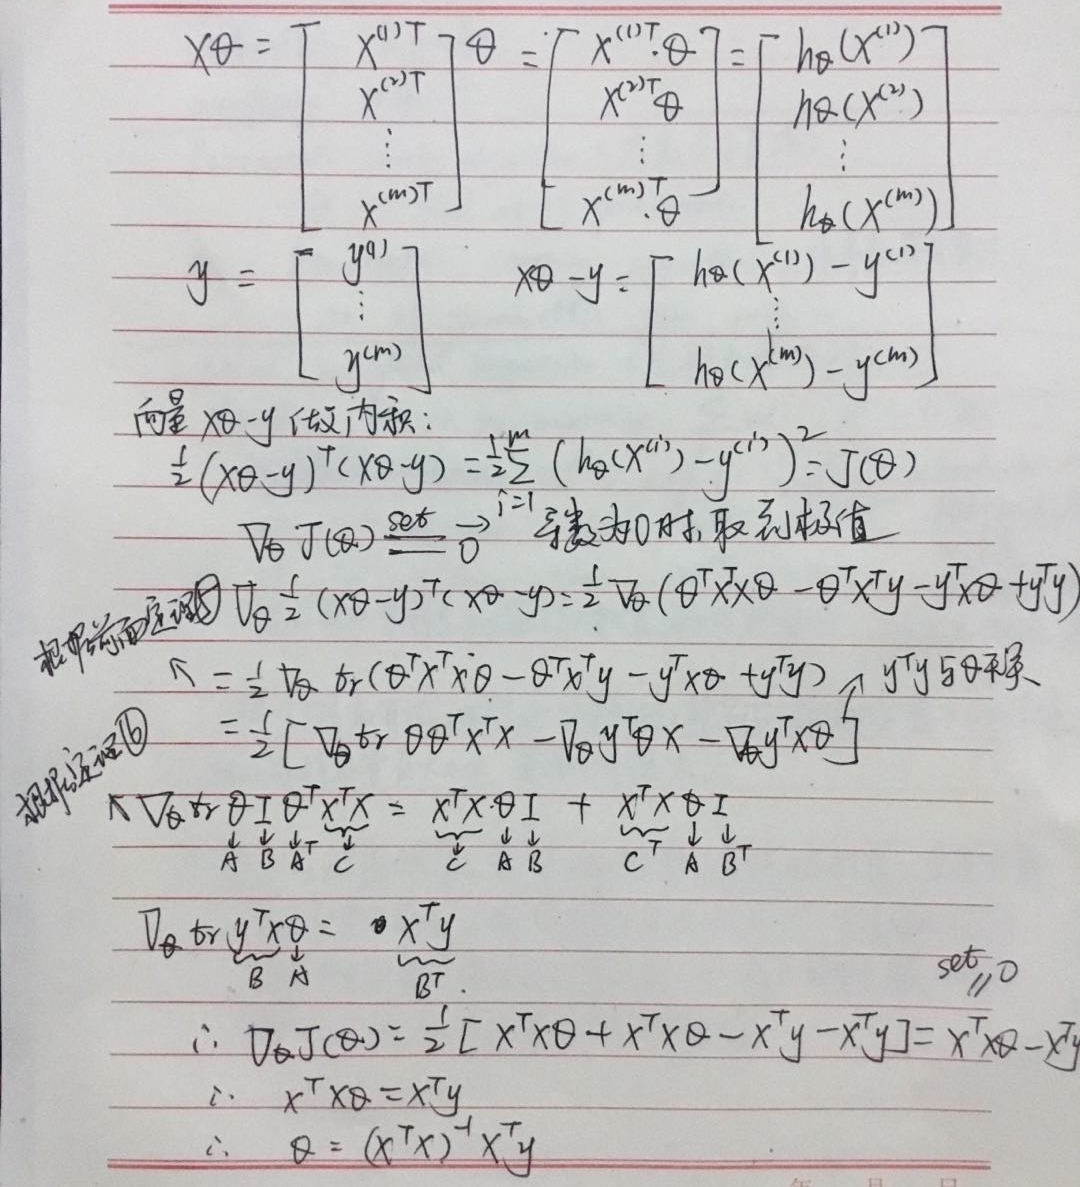 Xθ = [ X^(1)T X^(2)T ⋮ X^(m)T ] θ = [ X^(1)T·θ X^(2)Tθ ⋮ X^(m)T·θ ] = [ hθ(X^(1)) hθ(X^(2)) ⋮ hθ(X^(m)) ]
y = [ y^(1) ⋮ y^(m) ] Xθ-y = [ hθ(X^(1)) - y^(1) ⋮ hθ(X^(m)) - y^(m) ]
向量 Xθ-y 做内积:
½(Xθ-y)^T(Xθ-y) = ½ Σ_{i=1}^{m} (hθ(X^(i)) - y^(i))² = J(θ)
∇θ J(θ) set = 0 → 导数为0时,取到极值
根据前面定理⑤ ∇θ ½ (Xθ-y)^T(Xθ-y) = ½ ∇θ (θ^T X^T Xθ - θ^T X^T y - y^T Xθ + y^T y)
↖ = ½ ∇θ tr(θ^T X^T Xθ - θ^T X^T y - y^T Xθ + y^T y) ↗ y^T y 与θ无关
= ½ [ ∇θ tr θθ^T X^T X - ∇θ y^T θ X - ∇θ y^T Xθ ]
根据定理⑥
↖ ∇θ tr θ I θ^T X^T X = X^T X·θ I + X^T X θ I
A B A^T C C A B C^T A B^T
∇θ tr y^T Xθ = X^T y
B A B^T.
set = 0
∴ ∇θ J(θ) = ½ [ X^T Xθ + X^T Xθ - X^T y - X^T y ] = X^T Xθ - X^T y
∴ X^T Xθ = X^T y
∴ θ = (X^T X)^-1 X^T y
年 月 日